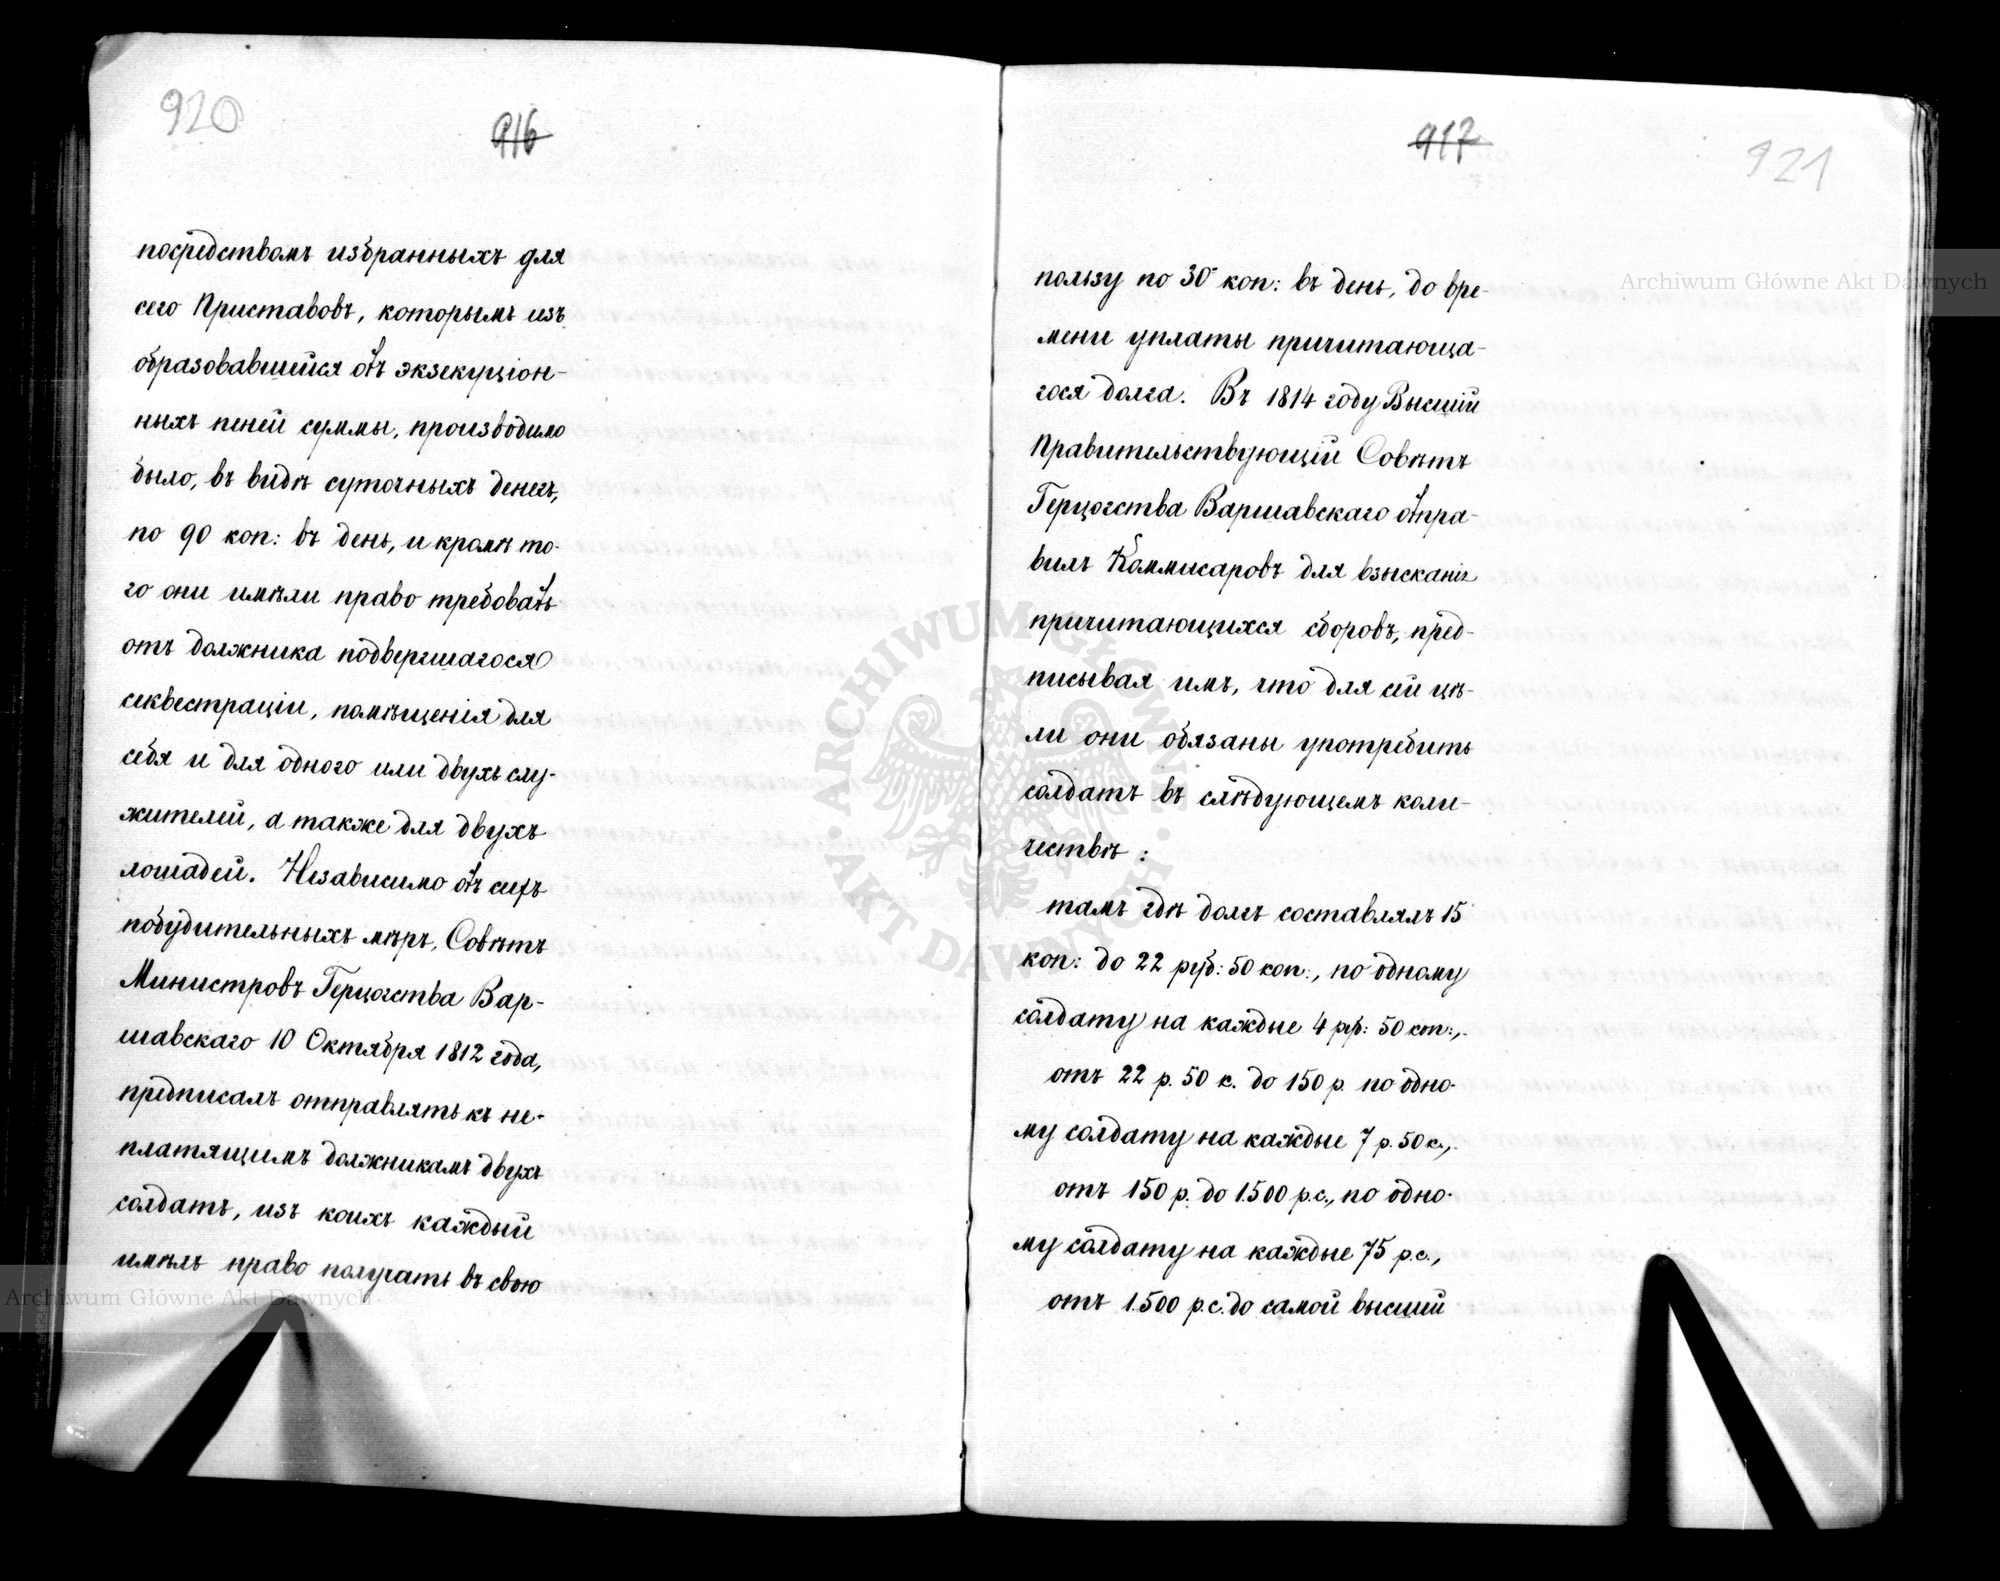 920
916
посредствомъ избранныхъ для
сего Приставовъ, которымъ изъ
образовавшейся отъ экзекуціон-
ныхъ пеней суммы, производимо
было, въ видѣ суточныхъ денегъ,
по 90 коп: въ день, и кромѣ то-
го они имѣли право требовать
отъ должника подвергшагося
секвестраціи, помѣщенія для
себя и для одного или двухъ слу-
жителей, а также для двухъ
лошадей. Независимо отъ сихъ
побудительныхъ мѣръ, Совѣтъ
Министровъ Герцогства Вар-
шавскаго 10 Октября 1812 года,
предписалъ отправлять къ не-
платящимъ должникамъ двухъ
солдатъ, изъ коихъ каждый
имѣлъ право получать въ свою
917
921
пользу по 30 коп: въ день, до вре-
мени уплаты причитающа-
гося долга. Въ 1814 году Высшій
Правительствующій Совѣтъ
Герцогства Варшавскаго отпра-
вилъ Коммисаровъ для взысканія
причитающихся сборовъ, пред-
писывая имъ, что для сей цѣ-
ли они обязаны употребить
солдатъ въ слѣдующемъ коли-
чествѣ:
тамъ гдѣ долгъ составлялъ 15
коп: до 22 руб: 50 коп:, по одному
солдату на каждые 4 руб: 50 коп:,
отъ 22 р. 50 к. до 150 р. по одно-
му солдату на каждые 7 р. 50 к.,
отъ 150 р. до 1.500 р.с., по одно-
му солдату на каждые 75 р.с.,
отъ 1.500 р.с. до самой высшей
Archiwum Główne Akt Dawnych
Archiwum Główne Akt Dawnych
ARCHIWUM GŁÓWNE
AKT DAWNYCH